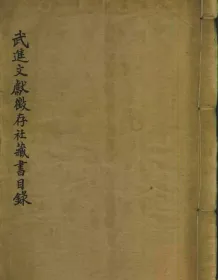 武進文獻徵存社藏書目錄